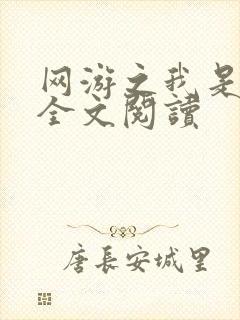 网游之我是
全文閱讀
唐長安城里